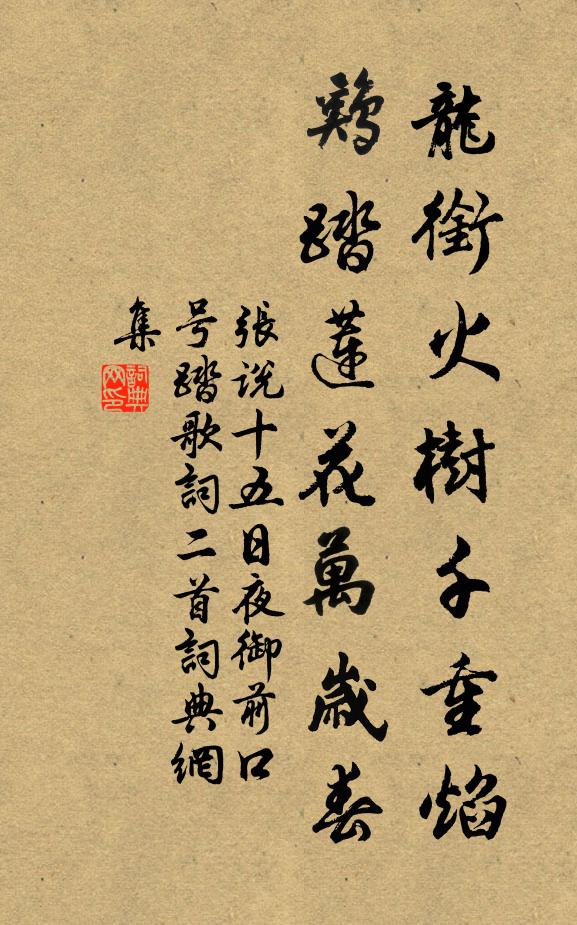 龍銜火樹千重焰
鷄踏蓮花萬歲春
張說十五日夜御前口
号踏歌詞二首詞典網
集
詞典
网印